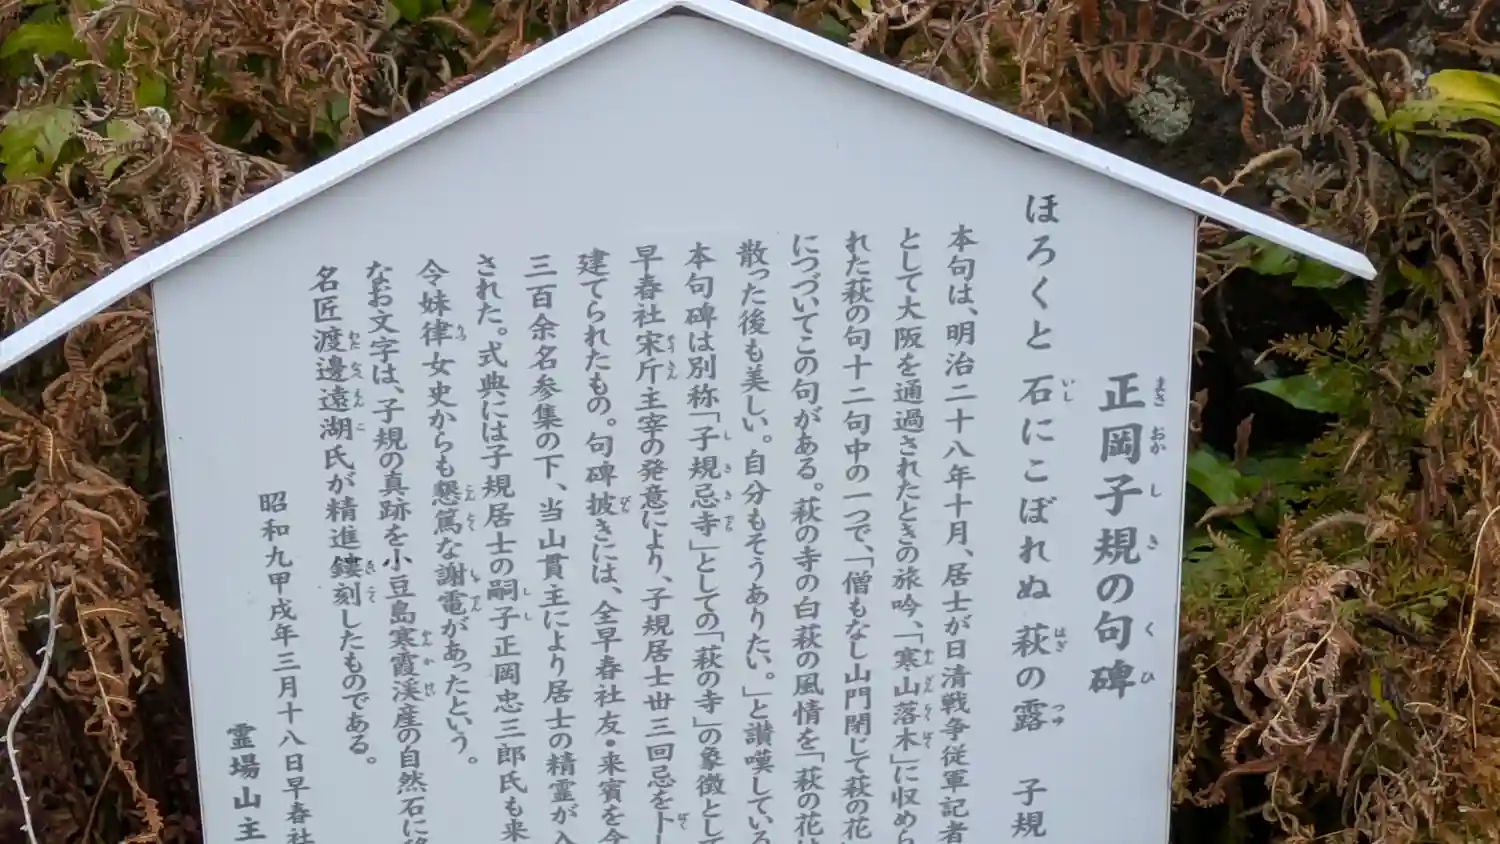 正岡子規の句碑
ほろくと石にこぼれぬ萩の露 子規
本句は、明治二十八年十月、居士が日清戦争従軍記者
として大阪を通過されたときの旅吟、「寒山落木」に収めら
れた萩の句十二句中の一つで、「僧もなし山門閉じて萩の花」
につづいてこの句がある。萩の寺の白萩の風情を「萩の花は
散った後も美しい。自分もそうありたい。」と讃嘆している
本句碑は別称「子規忌寺」としての「萩の寺」の象徴として
早春社宋斤主宰の発意により、子規居士丗三回忌を卜し
建てられたもの。句碑披きには、全早春社友・来賓を今
三百余名参集の下、当山貫主により居士の精霊が入
された。式典には子規居士の嗣子正岡忠三郎氏も来
令妹律女史からも懇篤な謝電があったという。
なお文字は、子規の真跡を小豆島寒霞渓産の自然石に
名匠渡邊遠湖氏が精進鏤刻したものである。
昭和九甲戌年三月十八日早春社
霊場山主